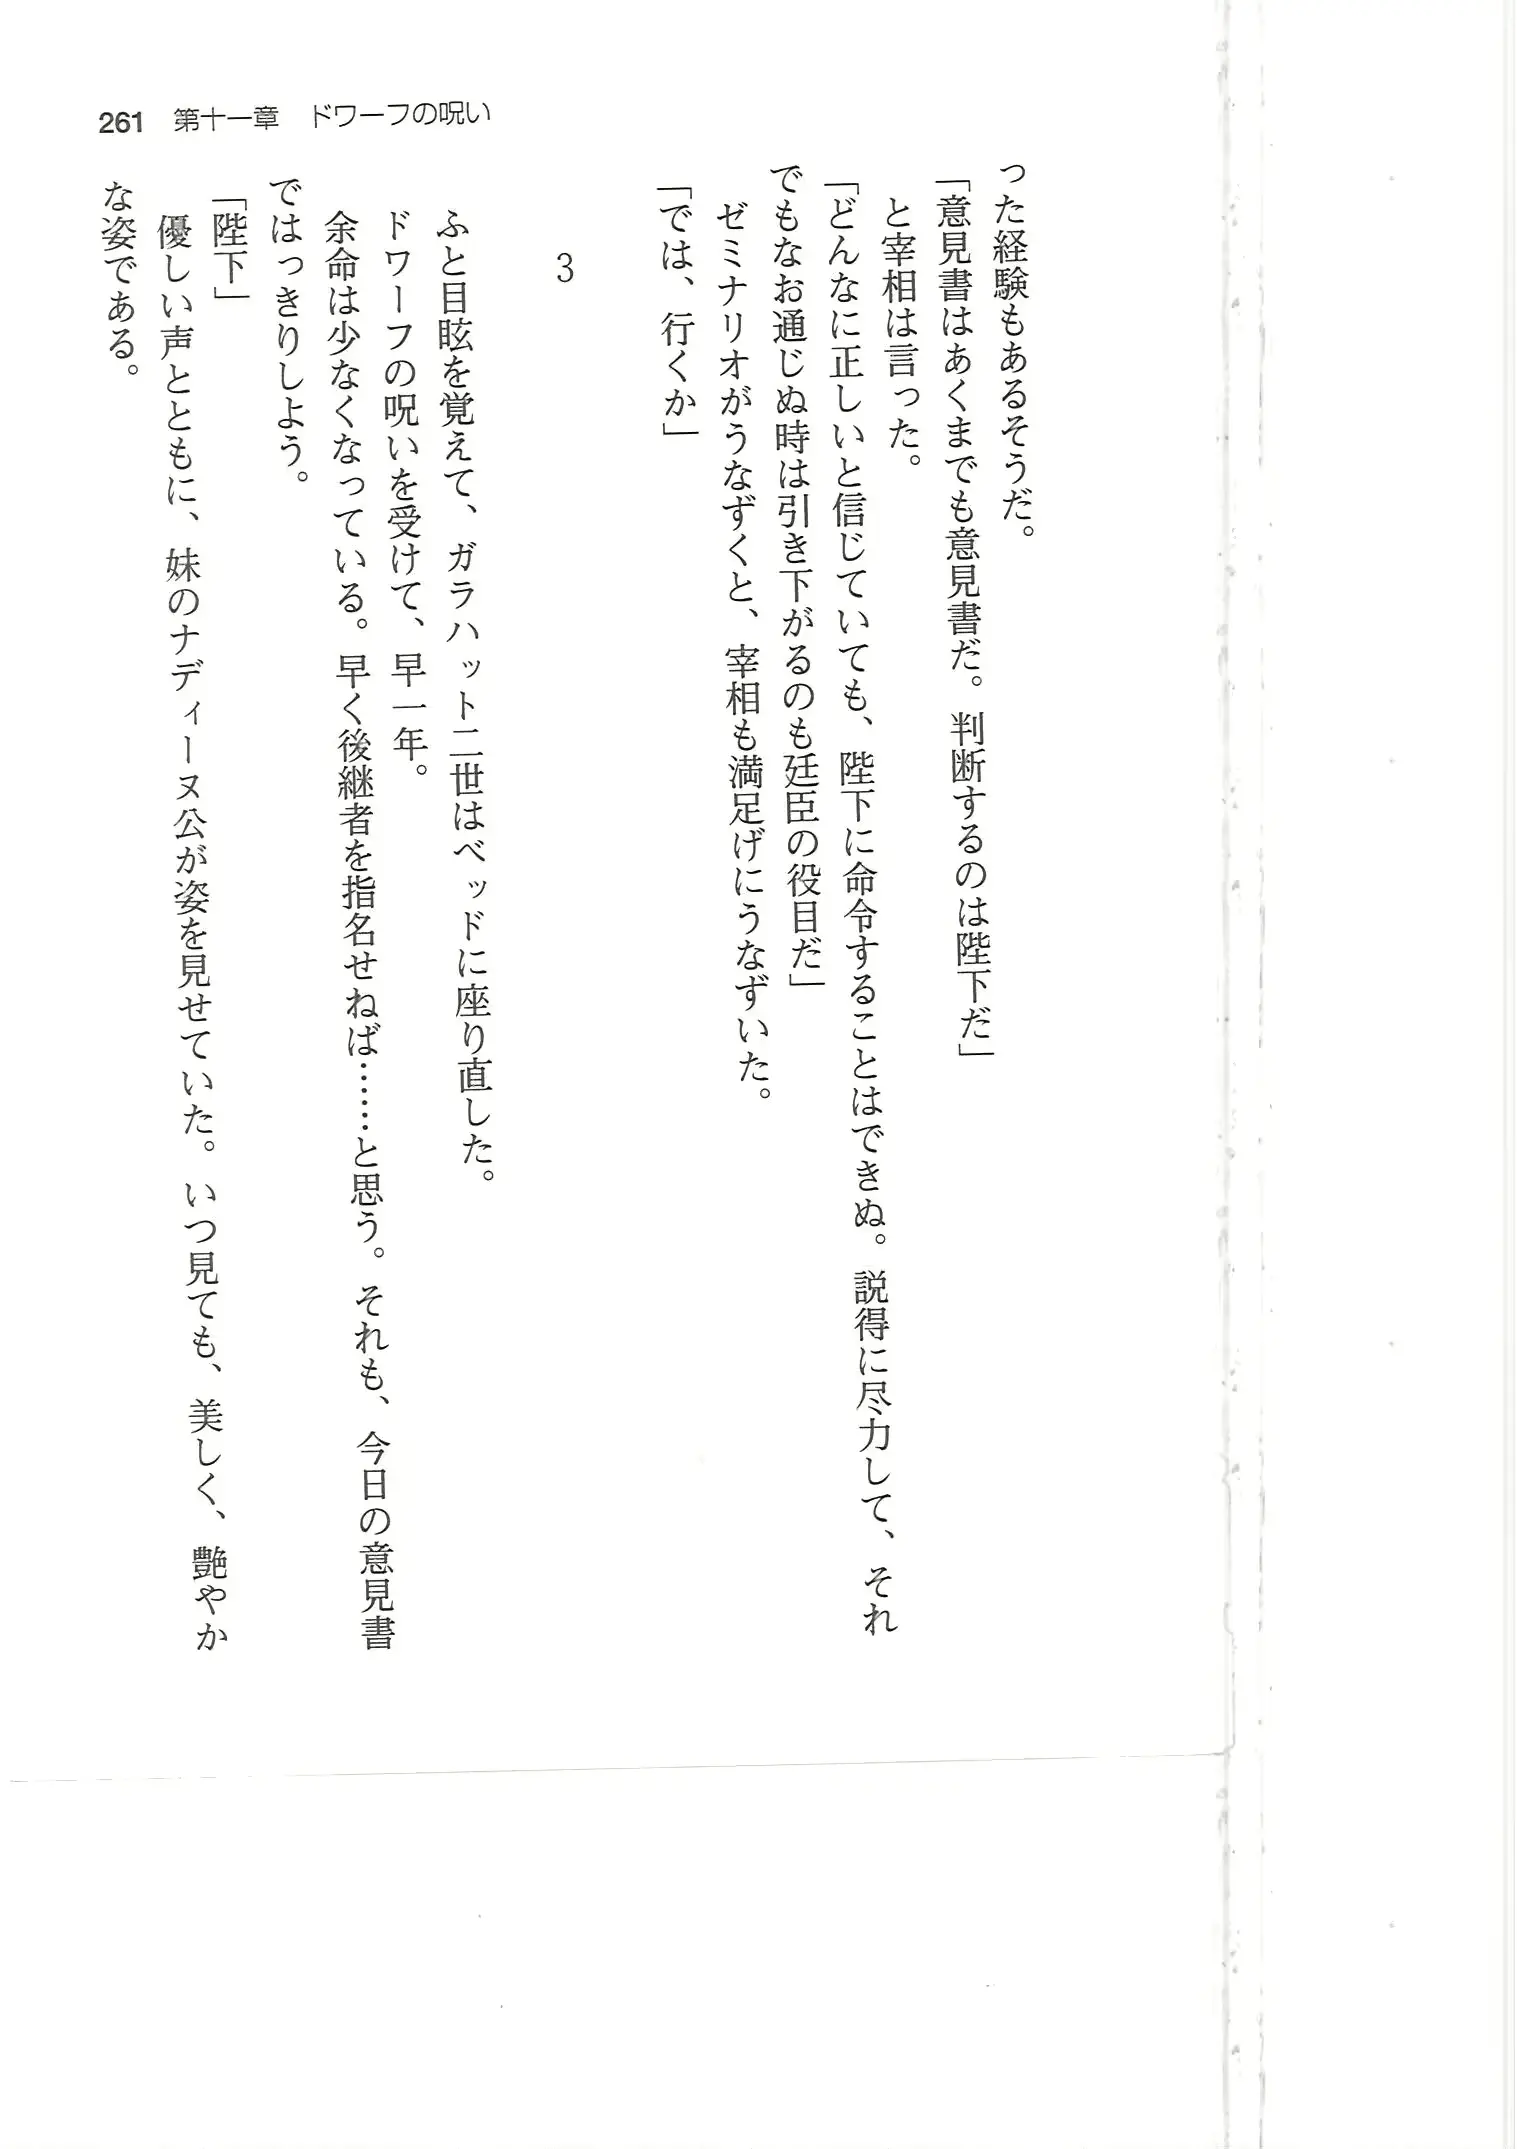 261 第十一章 ドワーフの呪い
った経験もあるそうだ。
「意見書はあくまでも意見書だ。判断するのは陛下だ」
と宰相は言った。
「どんなに正しいと信じていても、陛下に命令することはできぬ。説得に尽力して、それ
でもなお通じぬ時は引き下がるのも廷臣の役目だ」
ゼミナリオがうなずくと、宰相も満足げにうなずいた。
「では、行くか」
3
ふと目眩を覚えて、ガラハット二世はベッドに座り直した。
ドワーフの呪いを受けて、早一年。
余命は少なくなっている。早く後継者を指名せねば……と思う。それも、今日の意見書
ではっきりしよう。
「陛下」
優しい声とともに、妹のナディーヌ公が姿を見せていた。いつ見ても、美しく、艶やか
な姿である。